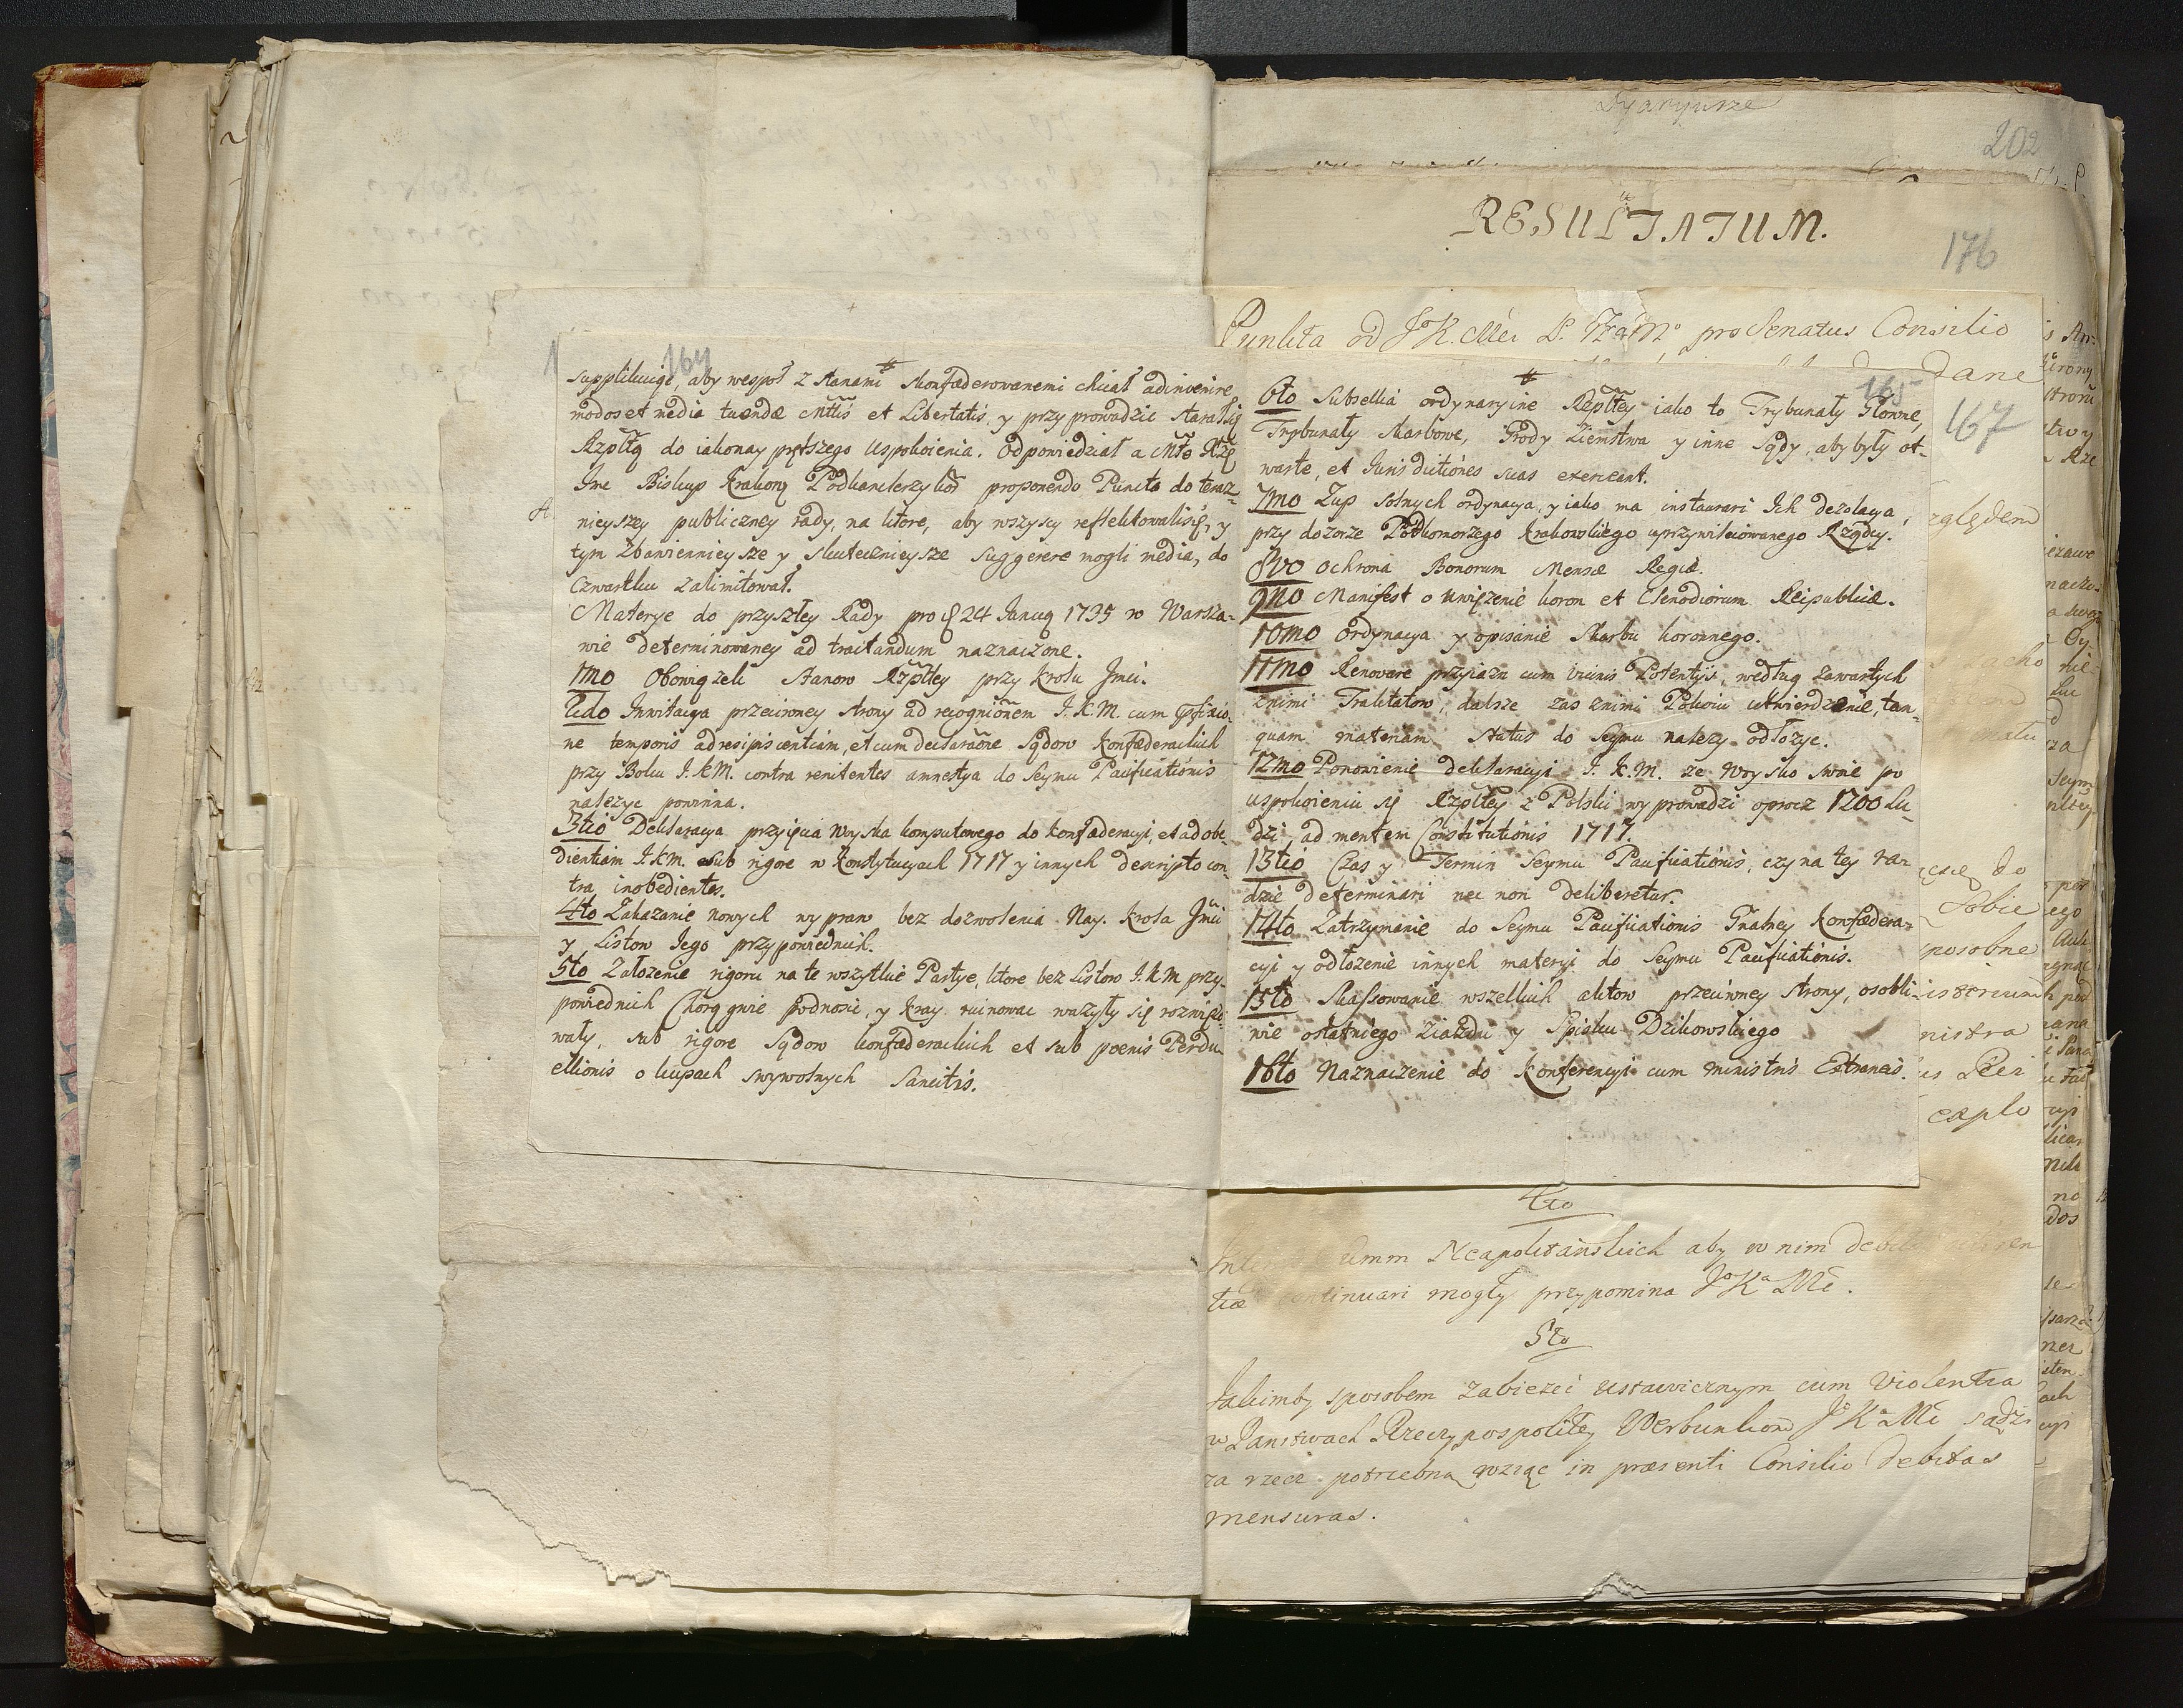 164
supplikuiąc, aby wespoł z Stanami Skonfæderowanemi chciał adinvenire
modos et media tuendæ Mttis et Libertatis, y przyprowadzic starał się
Rzpltą do iakonayprętszego uspokoienia. Odpowiedział a Mtto
Imc Biskup Krakowq Podkanclerzy proponendo Puncta do teraz-
nieyszey publiczney rady, na ktore, aby wszyscy reflektowali się, y
tym zbawiennieysze y skutecznieysze suggerere mogli media, do
czwartku zalimitował.
Materye do przyszłey Rady pro 24 Januq 1735 w Warsza-
wie determinowaney ad tractandum naznaczone.
1mo Obowiązek Stanow Rzpltey przy Krolu Jmci.
2do Inwitacya przeciwney strony ad recognionem J.K.M. cum
ne temporis ad resipiscentiam, et cum declaraone Sądow Konfæderackich
przy Boku J.K.M. contra renitentes amnestya do Seymu Pacificationis
należyc powinna.
3tio Deklaracya przyięcia Woyska komputowego do konfæderacyi, et ad obe-
dientiam J.K.M. sub rigore w Konstytucyach 1717 y innych descripto con-
tra inobedientes.
4to Zakazanie nowych wypraw bez dozwolenia Nay. Krola Jmci
y Listow Jego przypowiednich.
5to Założenie rigoru na te wszytkie Partye, ktore bez Listow J.K.M. przy-
powiednich Chorągwie podnosic, y kray ruinowac ważyły się
wały, sub rigore Sądow konfæderackich et sub poenis Perdu-
ellionis o kupach swywolnych Sancitis.
Dyaryusze
202
RESULTATUM.
176
Punkta od J K. Mci P. pro Senatus Consilio
dane
165
167
6to Subsellia ordynaryine Rzpltey iako to Trybunały Głowne,
Trybunały Skarbowe, Grody Ziemstwa y inne Sądy, aby były ot-
warte, et Jurisdictiones suas exerceant.
7mo Zup solnych ordynacya, y iako ma instaurari Ich dezolacya,
przy dozorze Podkomorzego Krakowskiego uprzywileiowanego Rządcy.
8vo Ochrona Bonorum Mensæ Regiæ.
9no Manifest o uwięzenie koron et Clenodiorum Reipublicæ.
10mo Ordynacya y opisanie Skarbu koronnego.
11mo Renovare przyiazn cum vicinis Potentiis, według zawartych
znimi Traktatow, dalsze zas znimi Pokoiu utwierdzenie, tan-
quam materiam Status do Seymu należy odłożyc.
12mo Ponowienie deklaracyi J.K.M. ze Woysko swoie po
uspokoieniu się Rzpltey z Polski wyprowadzi oprocz 1200 Lu-
dzi, ad mentem Constitutionis 1717.
13tio Czas y Termin Seymu Pacificationis, czy na tey ra-
dzie determinari nec non deliberetur.
14to Zatrzymanie do Seymu Pacificationis Gralney Konfædera-
cyi y odłożenie innych materyi do Seymu Pacificationis.
15to Skassowanie wszelkich aktow przeciwney strony, osobli-
wie ostatniego Ziazdu y Spisku Dzikowskiego
16to Naznaczenie do Konferencyi cum ministris Extraneis.
względem
do
Sobie
sposobne
nistra
4to
Neapolitanskich aby w nim
continuari mogły przypomina J K Mc.
5to
Jakimby sposobem zabieżeć ustawicznym cum violentia
w Panstwach Rzeczypospolitey Werbunkom J K Mc sądzi
za rzecz potrzebną wziąc in præsenti Consilio debitas
mensuras.